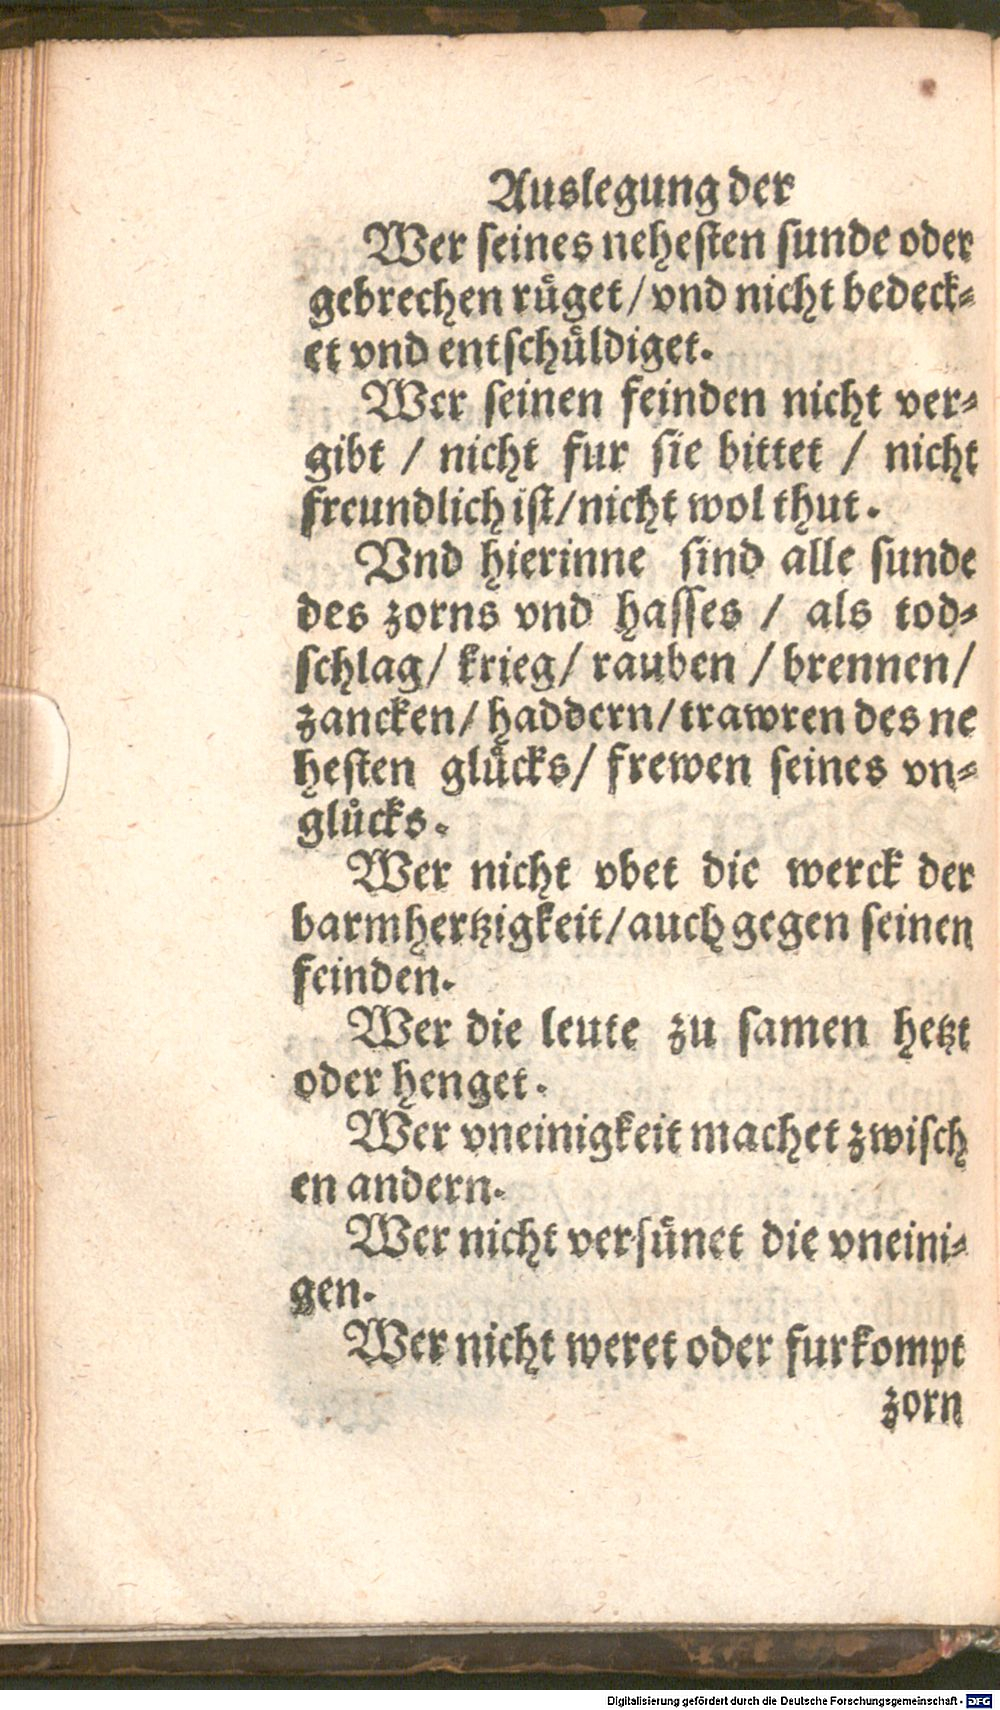 Auslegung der
Wer ſeines neheſten ſunde oder
gebrechen ruͤget / vnd nicht bedeck⸗
et vnd entſchuͤldiget.
Wer ſeinen feinden nicht ver⸗
gibt / nicht fur ſie bittet / nicht
freundlich iſt / nicht wol thut.
Vnd hierinne ſind alle ſunde
des zorns vnd haſſes / als tod⸗
ſchlag / krieg / rauben / brennen /
zancken / haddern / trawren des ne
heſten gluͤcks / frewen ſeines vn⸗
gluͤcks.
Wer nicht vbet die werck der
barmhertzigkeit / auch gegen ſeinen
feinden.
Wer die leute zu ſamen hetzt
oder henget.
Wer vneinigkeit machet zwiſch
en andern.
Wer nicht verſuͤnet die vneini⸗
gen.
Wer nicht weret oder furkompt
zorn
Digitalisierung gefördert durch die Deutsche Forschungsgemeinschaft - DFG